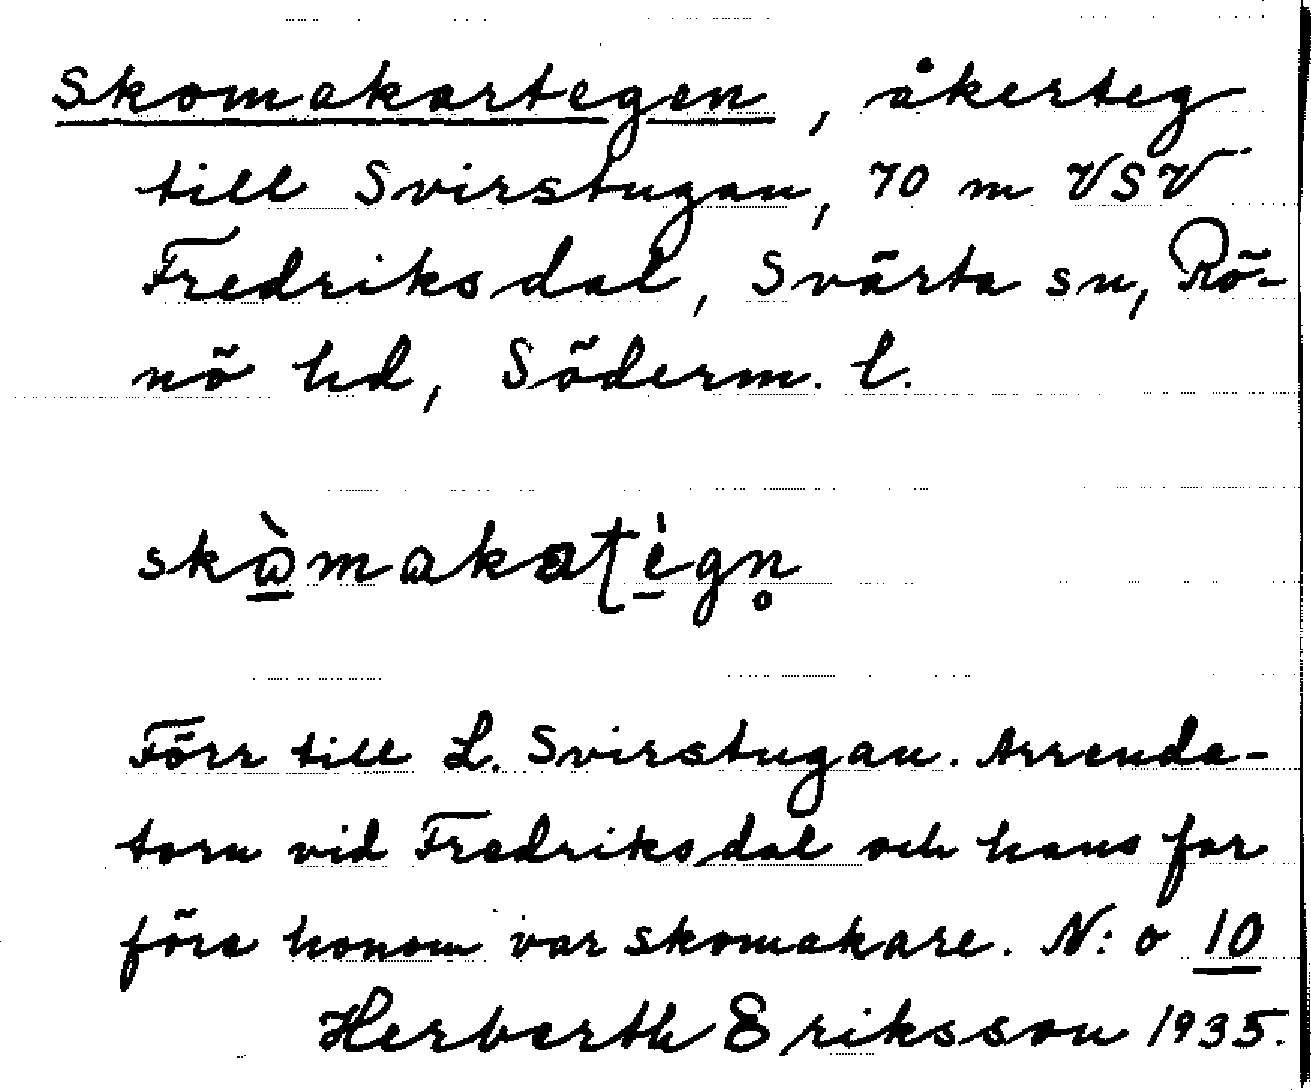 Skomakartegen, åkerteg
till Svirstugan, 70 m VSV
Fredriksdal, Svärta sn, Rö-
nö hd, Söderm. l.
skὼmakatègn̥
Förr till L. Svirstugan. Arrenda-
torn vid Fredriksdal och hans far
före honom var skomakare. N:o 10
Herberth Eriksson 1935.